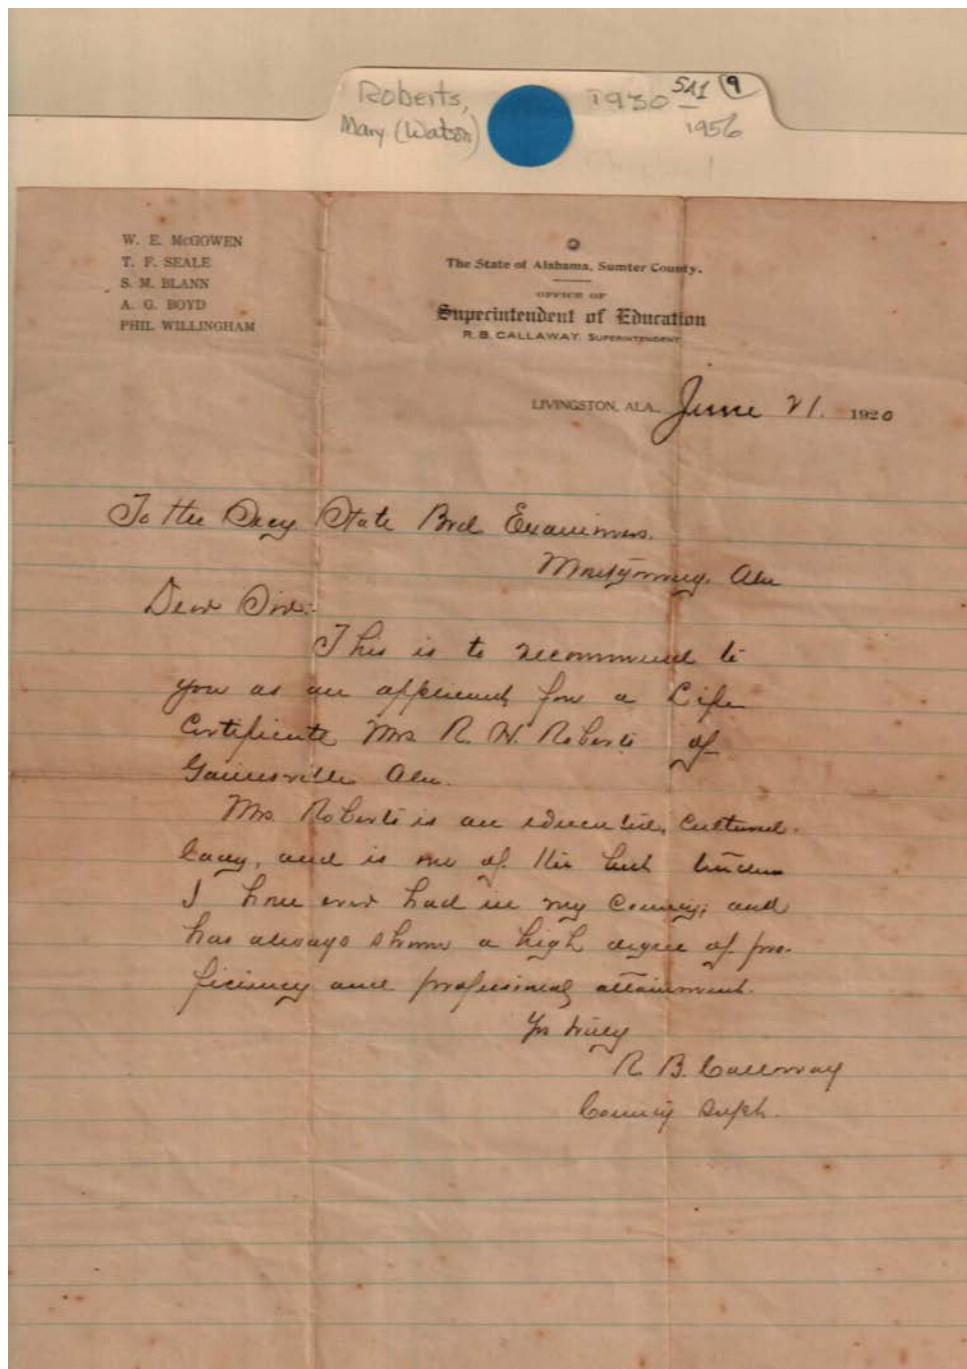 Roberts,
Mary (Watson)
1930 –
1956
5A1 9
W. E. McGOWEN
T. F. SEALE
S. M. BLANN
A. G. BOYD
PHIL WILLINGHAM
The State of Alabama, Sumter County.
OFFICE OF
Superintendent of Education
R. B. CALLAWAY, SUPERINTENDENT
LIVINGSTON, ALA., June 21. 1920
To the Secy State Brd Examiners.
Montgomery, Ala
Dear Sir:-
This is to recommend to
you as an applicant for a Life
Certificate Mrs R. W. Roberts of
Gainesville Ala.
Mrs. Roberts is an educated, cultured
lady, and is one of the best teachers
I have ever had in my County; and
has always shown a high degree of pro-
ficiency and professional attainment.
Yrs truly
R. B. Callaway
County Supt.